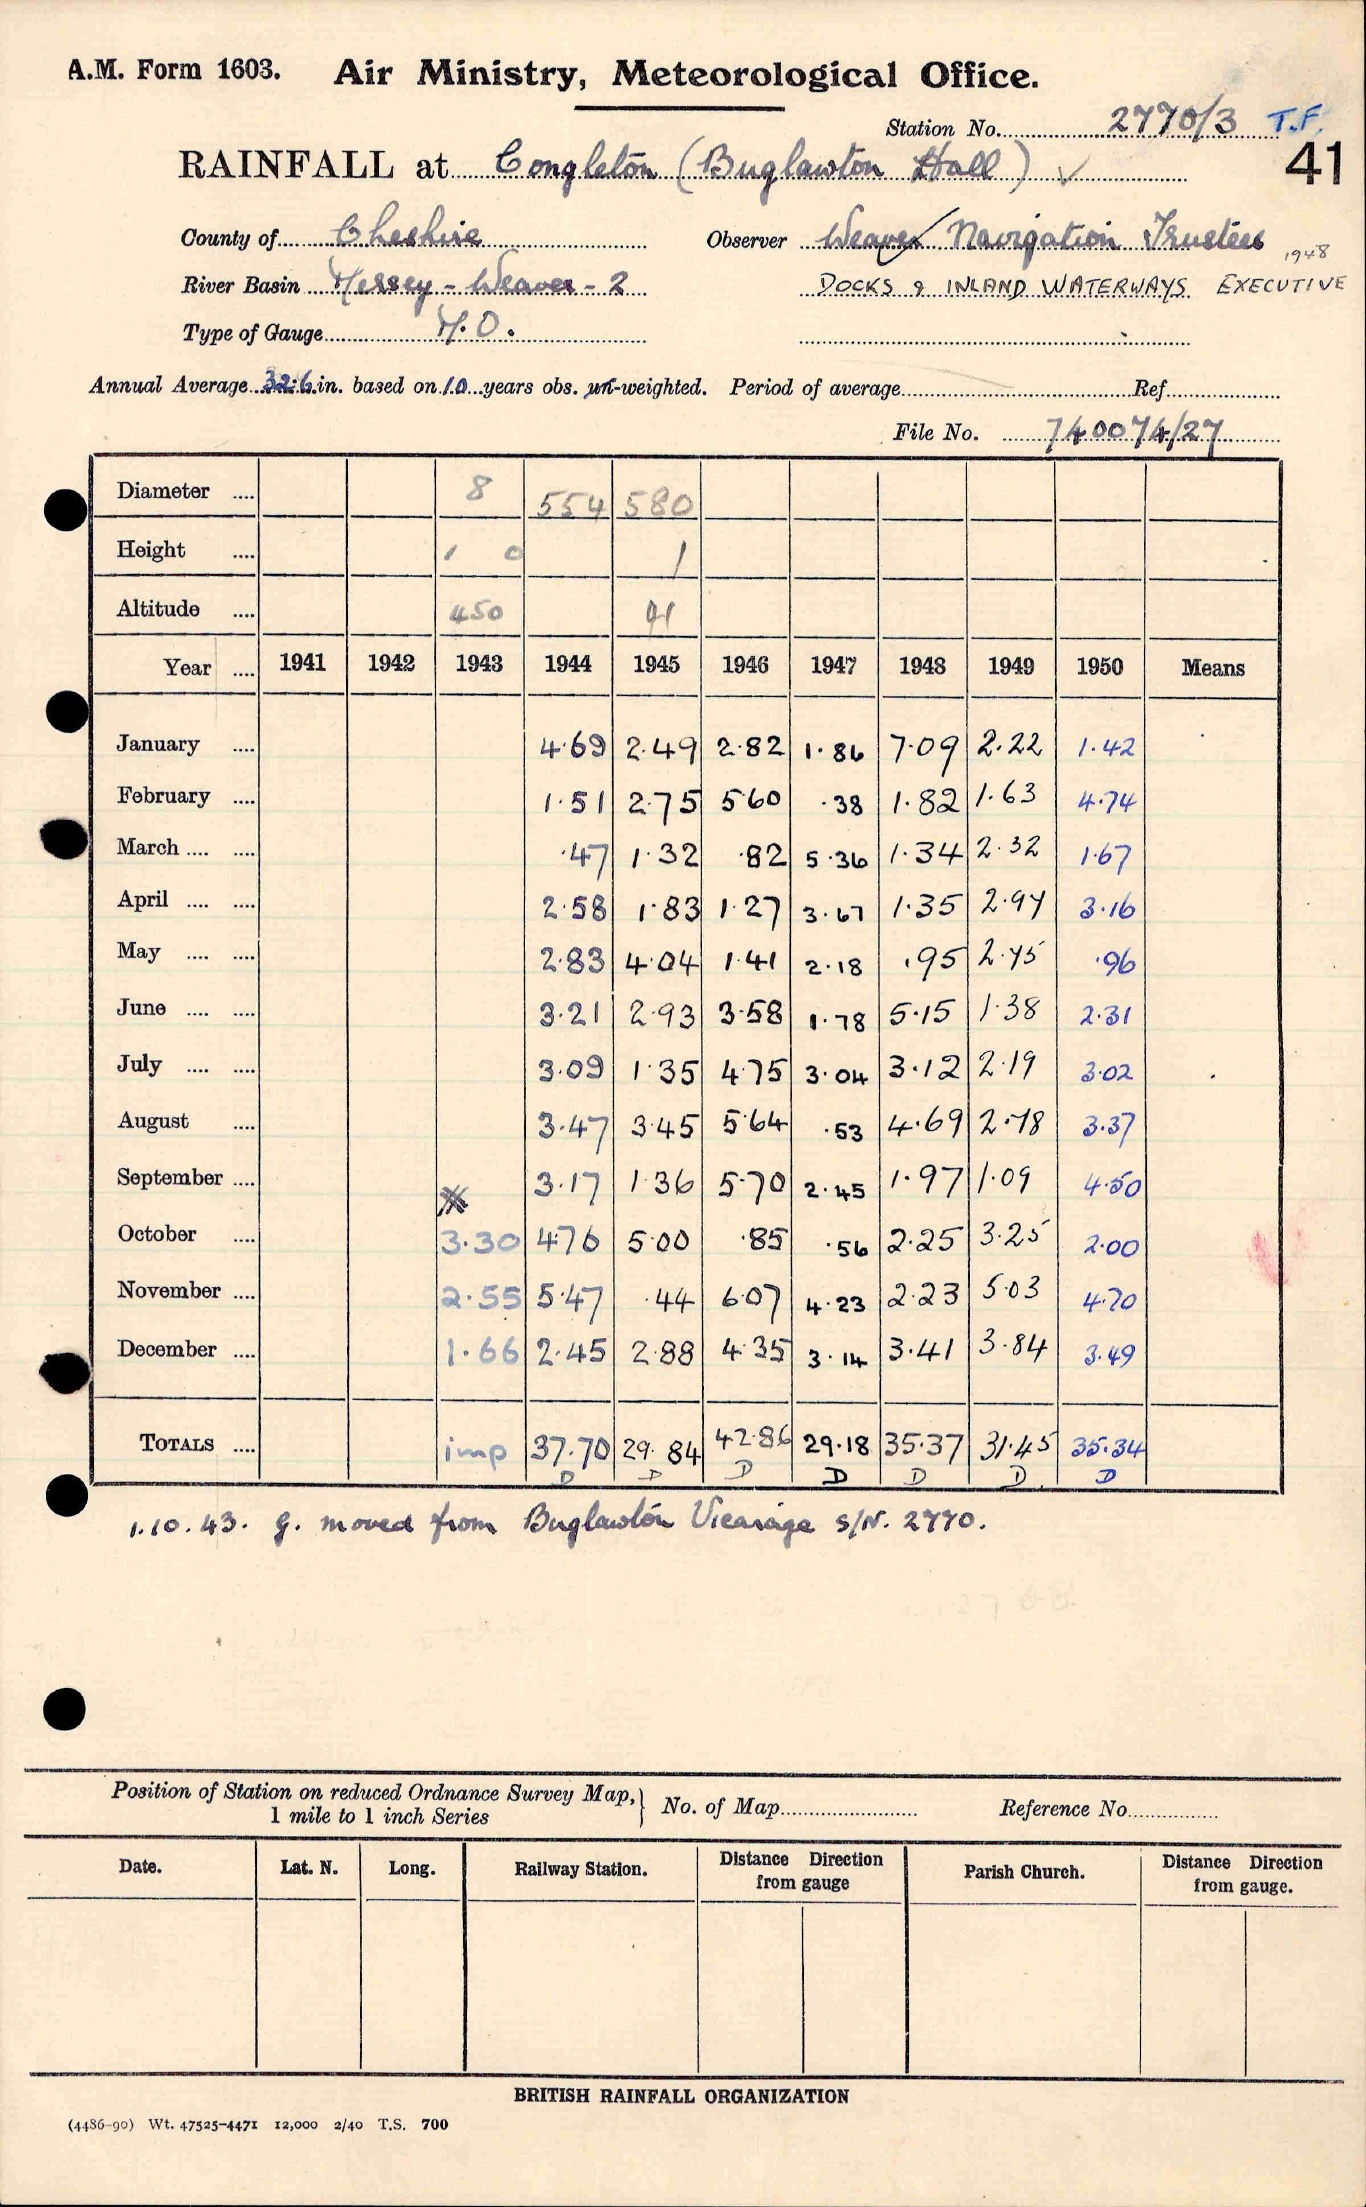 A.M. Form 1603. Air Ministry, Meteorological Office.
Station No. 2770/3 T.F.
RAINFALL at Congleton (Buglawton Hall) ✓ 41
County of Cheshire Observer Weaver Navigation Trustees 1948
River Basin Mersey - Weaver - 2 DOCKS & INLAND WATERWAYS EXECUTIVE
Type of Gauge M.O.
Annual Average 32.6 in. based on 10 years obs. un-weighted. Period of average Ref.
File No. 740074/27
Diameter .... 8 554 580
Height .... 1 0 1
Altitude .... 450 41
Year .... 1941 1942 1943 1944 1945 1946 1947 1948 1949 1950 Means
January .... 4.69 2.49 2.82 1.86 7.09 2.22 1.42
February .... 1.51 2.75 5.60 .38 1.82 1.63 4.74
March .... .... .47 1.32 .82 5.36 1.34 2.32 1.67
April .... .... 2.58 1.83 1.27 3.67 1.35 2.97 3.16
May .... .... 2.83 4.04 1.41 2.18 .95 2.75 .96
June .... .... 3.21 2.93 3.58 1.78 5.15 1.38 2.31
July .... .... 3.09 1.35 4.75 3.04 3.12 2.19 3.02
August .... 3.47 3.45 5.64 .53 4.69 2.78 3.37
September .... 3.17 1.36 5.70 2.45 1.97 1.09 4.50
October .... 3.30 4.76 5.00 .85 .56 2.25 3.25 2.00
November .... 2.55 5.47 .44 6.07 4.23 2.23 5.03 4.70
December .... 1.66 2.45 2.88 4.35 3.14 3.41 3.84 3.49
TOTALS .... imp 37.70 29.84 42.86 29.18 35.37 31.45 35.34
D D D D D D D
1.10.43. G. moved from Buglawton Vicarage S/N. 2770.
Position of Station on reduced Ordnance Survey Map, } No. of Map Reference No.
1 mile to 1 inch Series
Date. Lat. N. Long. Railway Station. Distance Direction from gauge Parish Church. Distance Direction from gauge.
BRITISH RAINFALL ORGANIZATION
(4486-90) Wt. 47525-4471 12,000 2/40 T.S. 700